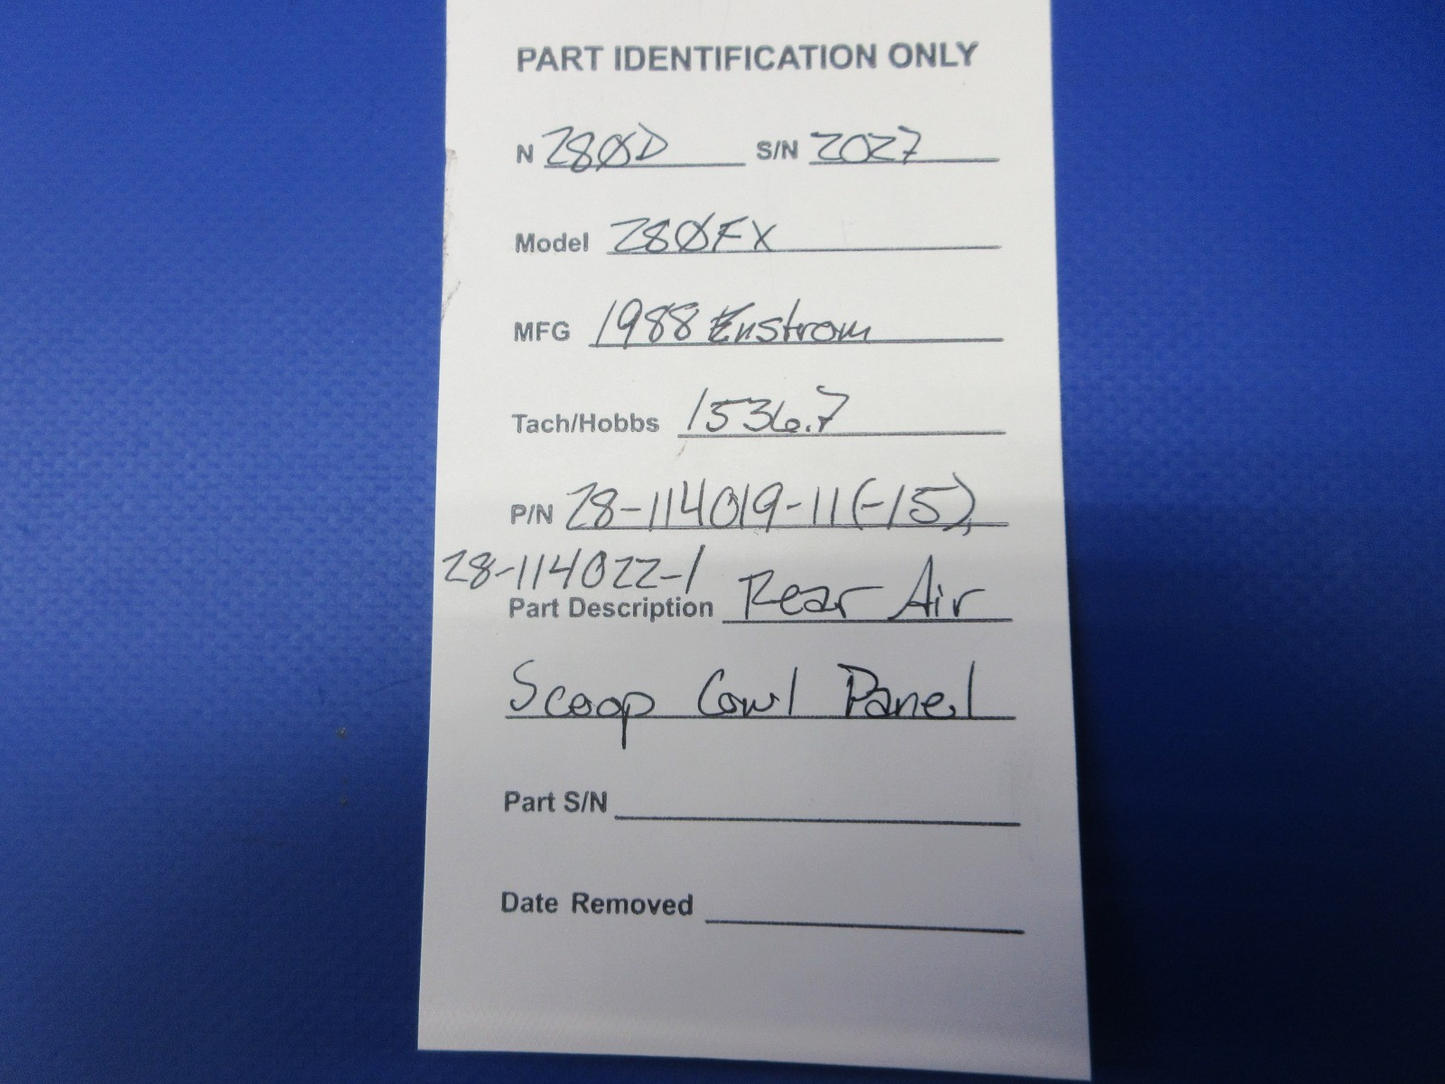 PART IDENTIFICATION ONLY
N 28ØD S/N 2027
Model 28ØFX
MFG 1988 Enstrom
Tach/Hobbs 1536.7
P/N 28-114019-11(-15),
28-114022-1
Part Description Rear Air
Scoop Cowl Panel
Part S/N
Date Removed